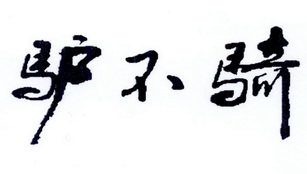 驴不骑